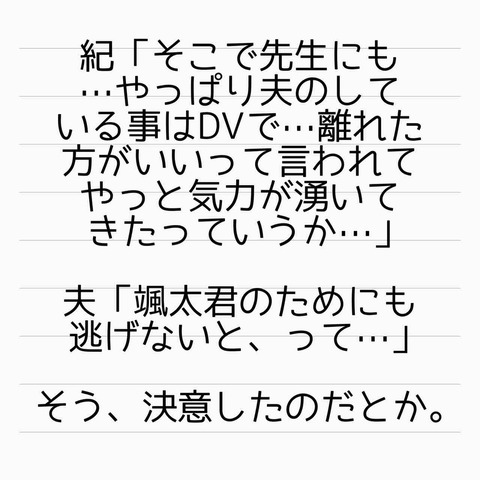 紀「そこで先生にも
…やっぱり夫のして
いる事はDVで…離れた
方がいいって言われて
やっと気力が湧いて
きたっていうか…」
夫「颯太君のためにも
逃げないと、って…」
そう、決意したのだとか。